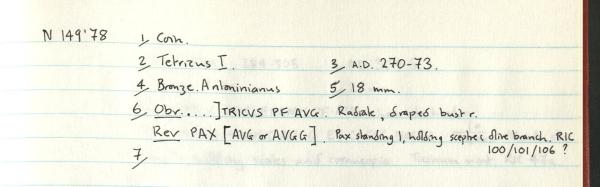 N 149'78 1, Coin.
2, Tetricus I. 3, A.D. 270-73.
4, Bronze. Antoninianus 5, 18 mm.
6, Obv. . . . ] TRICVS PF AVG. Radiate, draped bust r.
Rev PAX [AVG or AVGG]. Pax standing l, holding sceptre & olive branch. RIC
100/101/106 ?
7,